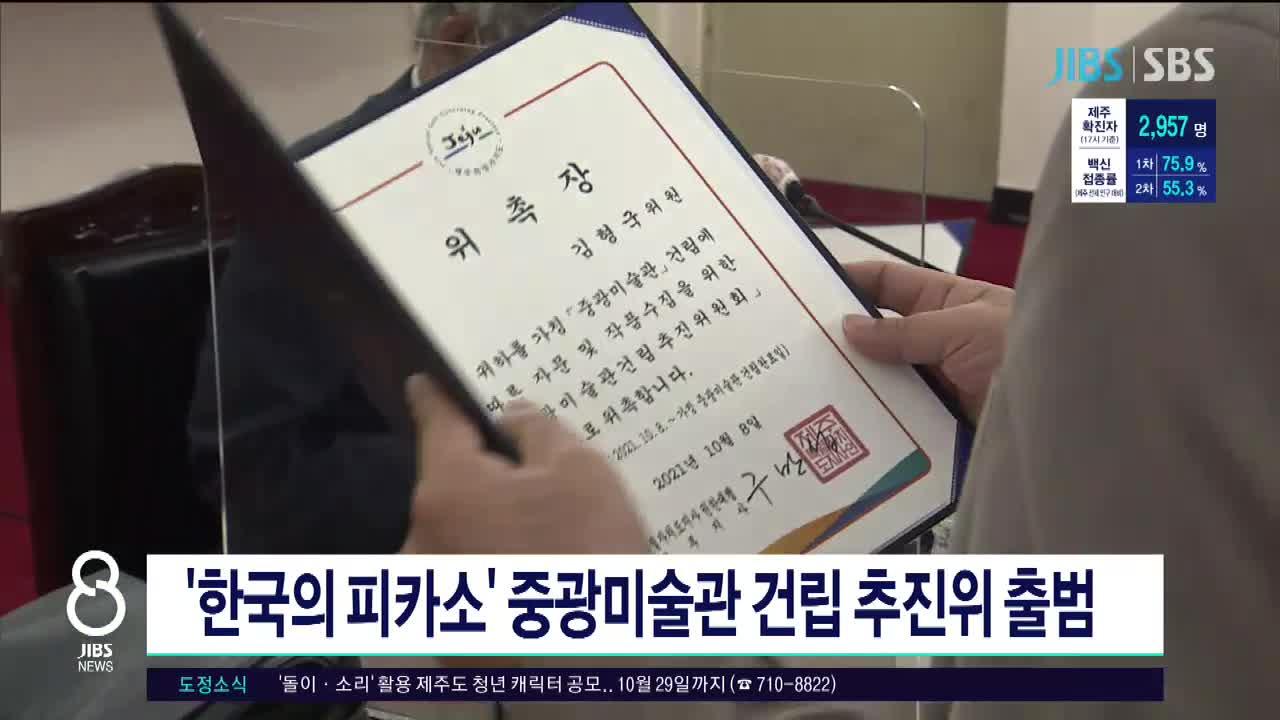 JIBS SBS
제주
확진자
(17시 기준)
2,957 명
백신
접종률
1차 75.9 %
2차 55.3 %
Jeju
위 촉 장
김형국 위원
귀하를 가칭「중광미술관」건립에
따른 자문 및 작품수집을 위한
미술관건립추진위원회」
로 위촉합니다.
2021. 10. 8. ~ 가칭 중광미술관 건립완료일)
2021년 10월 8일
구만섭
8
JIBS
NEWS
'한국의 피카소' 중광미술관 건립 추진위 출범
도정소식 '돌이 · 소리' 활용 제주도 청년 캐릭터 공모.. 10월 29일까지 (☎ 710-8822)